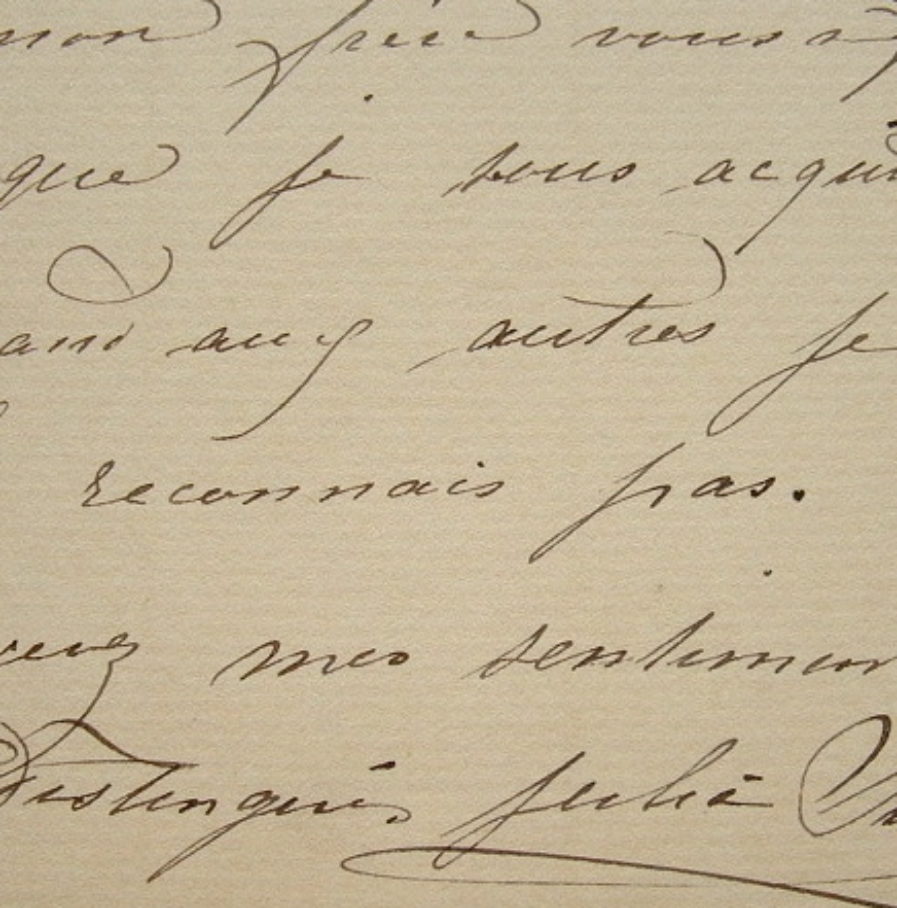 mon frère vous r
que je vous acqui
and aux autres je
reconnais pas.
mes sentimen
Distingués Julia